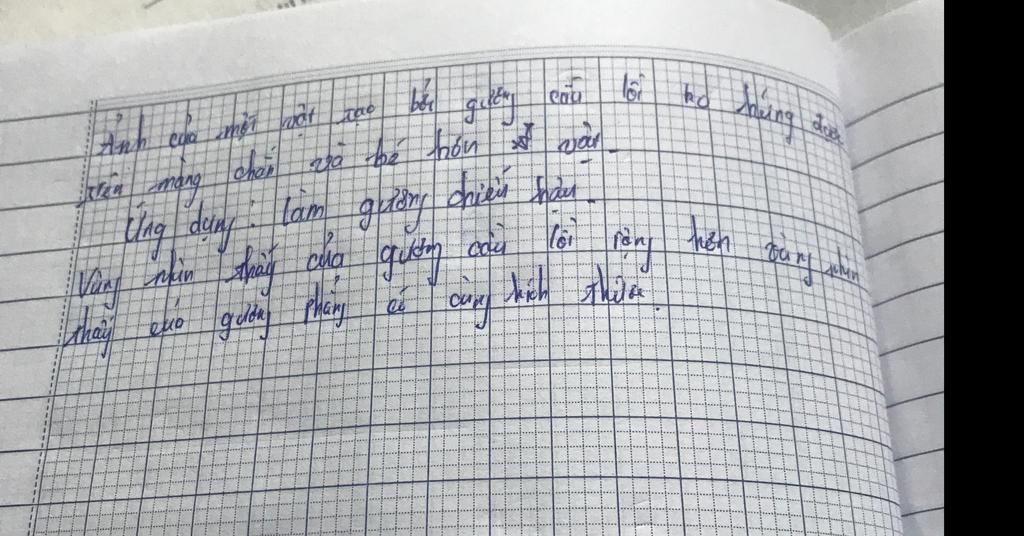 Ảnh của một vật tạo bởi gương cầu lồi ko hứng được
trên màng chắn và bé hơn vật.
Ứng dụng: làm gương chiếu hậu.
Vùng nhìn thấy của gương cầu lồi rộng hơn vùng nhìn
thấy của gương phẳng có cùng kích thước.